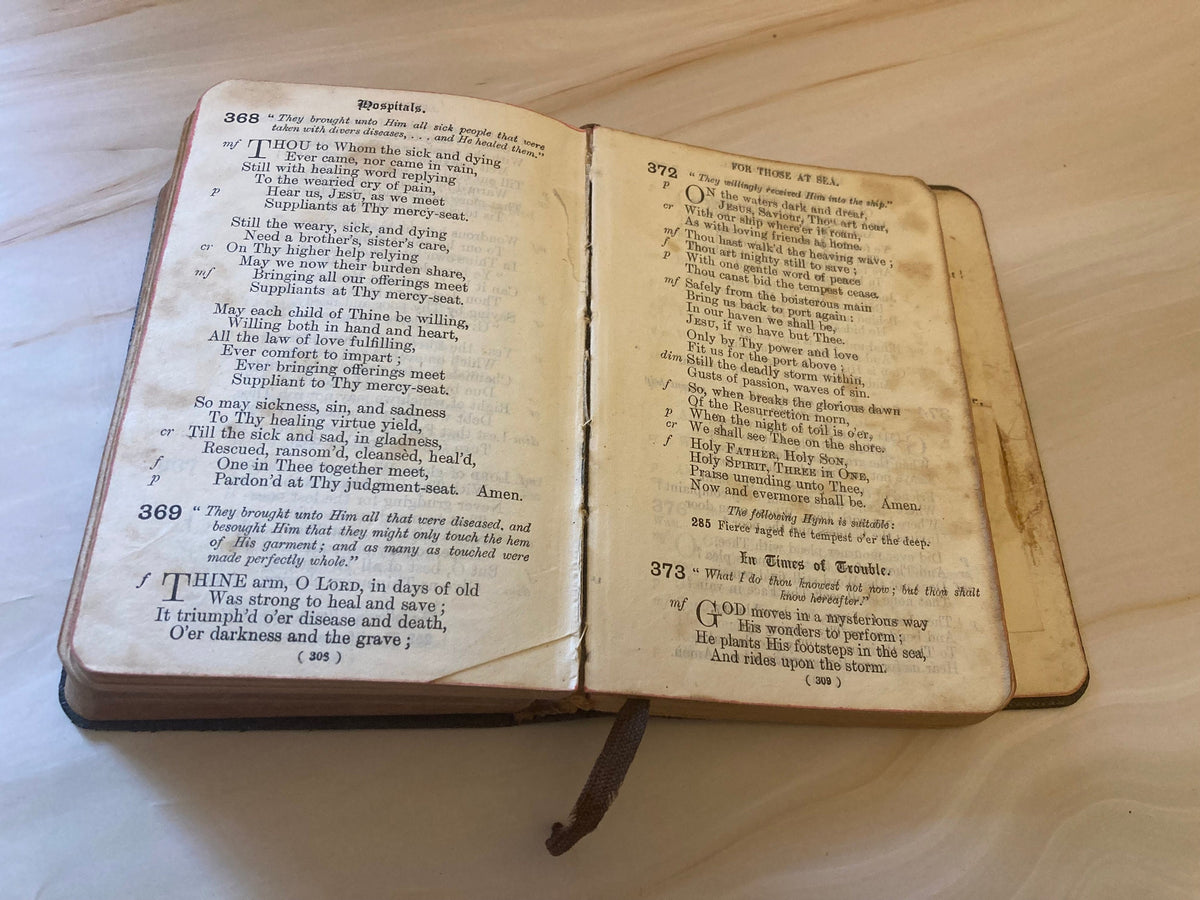 Hospitals.
368 "They brought unto Him all sick people that were
taken with divers diseases, . . . and He healed them."
mf THOU to Whom the sick and dying
Ever came, nor came in vain,
Still with healing word replying
To the wearied cry of pain,
p Hear us, JESU, as we meet
Suppliants at Thy mercy-seat.
Still the weary, sick, and dying
Need a brother's, sister's care,
cr On Thy higher help relying
May we now their burden share,
mf Bringing all our offerings meet
Suppliants at Thy mercy-seat.
May each child of Thine be willing,
Willing both in hand and heart,
All the law of love fulfilling,
Ever comfort to impart ;
Ever bringing offerings meet
Suppliant to Thy mercy-seat.
So may sickness, sin, and sadness
To Thy healing virtue yield,
cr Till the sick and sad, in gladness,
Rescued, ransom'd, cleansèd, heal'd,
f One in Thee together meet,
p Pardon'd at Thy judgment-seat. Amen.
369 "They brought unto Him all that were diseased, and
besought Him that they might only touch the hem
of His garment; and as many as touched were
made perfectly whole."
f THINE arm, O LORD, in days of old
Was strong to heal and save ;
It triumph'd o'er disease and death,
O'er darkness and the grave ;
( 308 )
FOR THOSE AT SEA.
372 "They willingly received Him into the ship."
p ON the waters dark and drear,
JESUS, Saviour, Thou art near,
cr With our ship where'er it roam,
As with loving friends at home.
mf Thou hast walk'd the heaving wave ;
f Thou art mighty still to save ;
p With one gentle word of peace
Thou canst bid the tempest cease.
mf Safely from the boisterous main
Bring us back to port again :
In our haven we shall be,
JESU, if we have but Thee.
Only by Thy power and love
Fit us for the port above ;
dim Still the deadly storm within,
Gusts of passion, waves of sin.
f So, when breaks the glorious dawn
Of the Resurrection morn,
p When the night of toil is o'er,
cr We shall see Thee on the shore.
f Holy FATHER, Holy SON,
Holy SPIRIT, THREE in ONE,
Praise unending unto Thee,
Now and evermore shall be. Amen.
The following Hymn is suitable :
285 Fierce raged the tempest o'er the deep.
In Times of Trouble.
373 "What I do thou knowest not now; but thou shalt
know hereafter."
mf GOD moves in a mysterious way
His wonders to perform ;
He plants His footsteps in the sea,
And rides upon the storm.
( 309 )